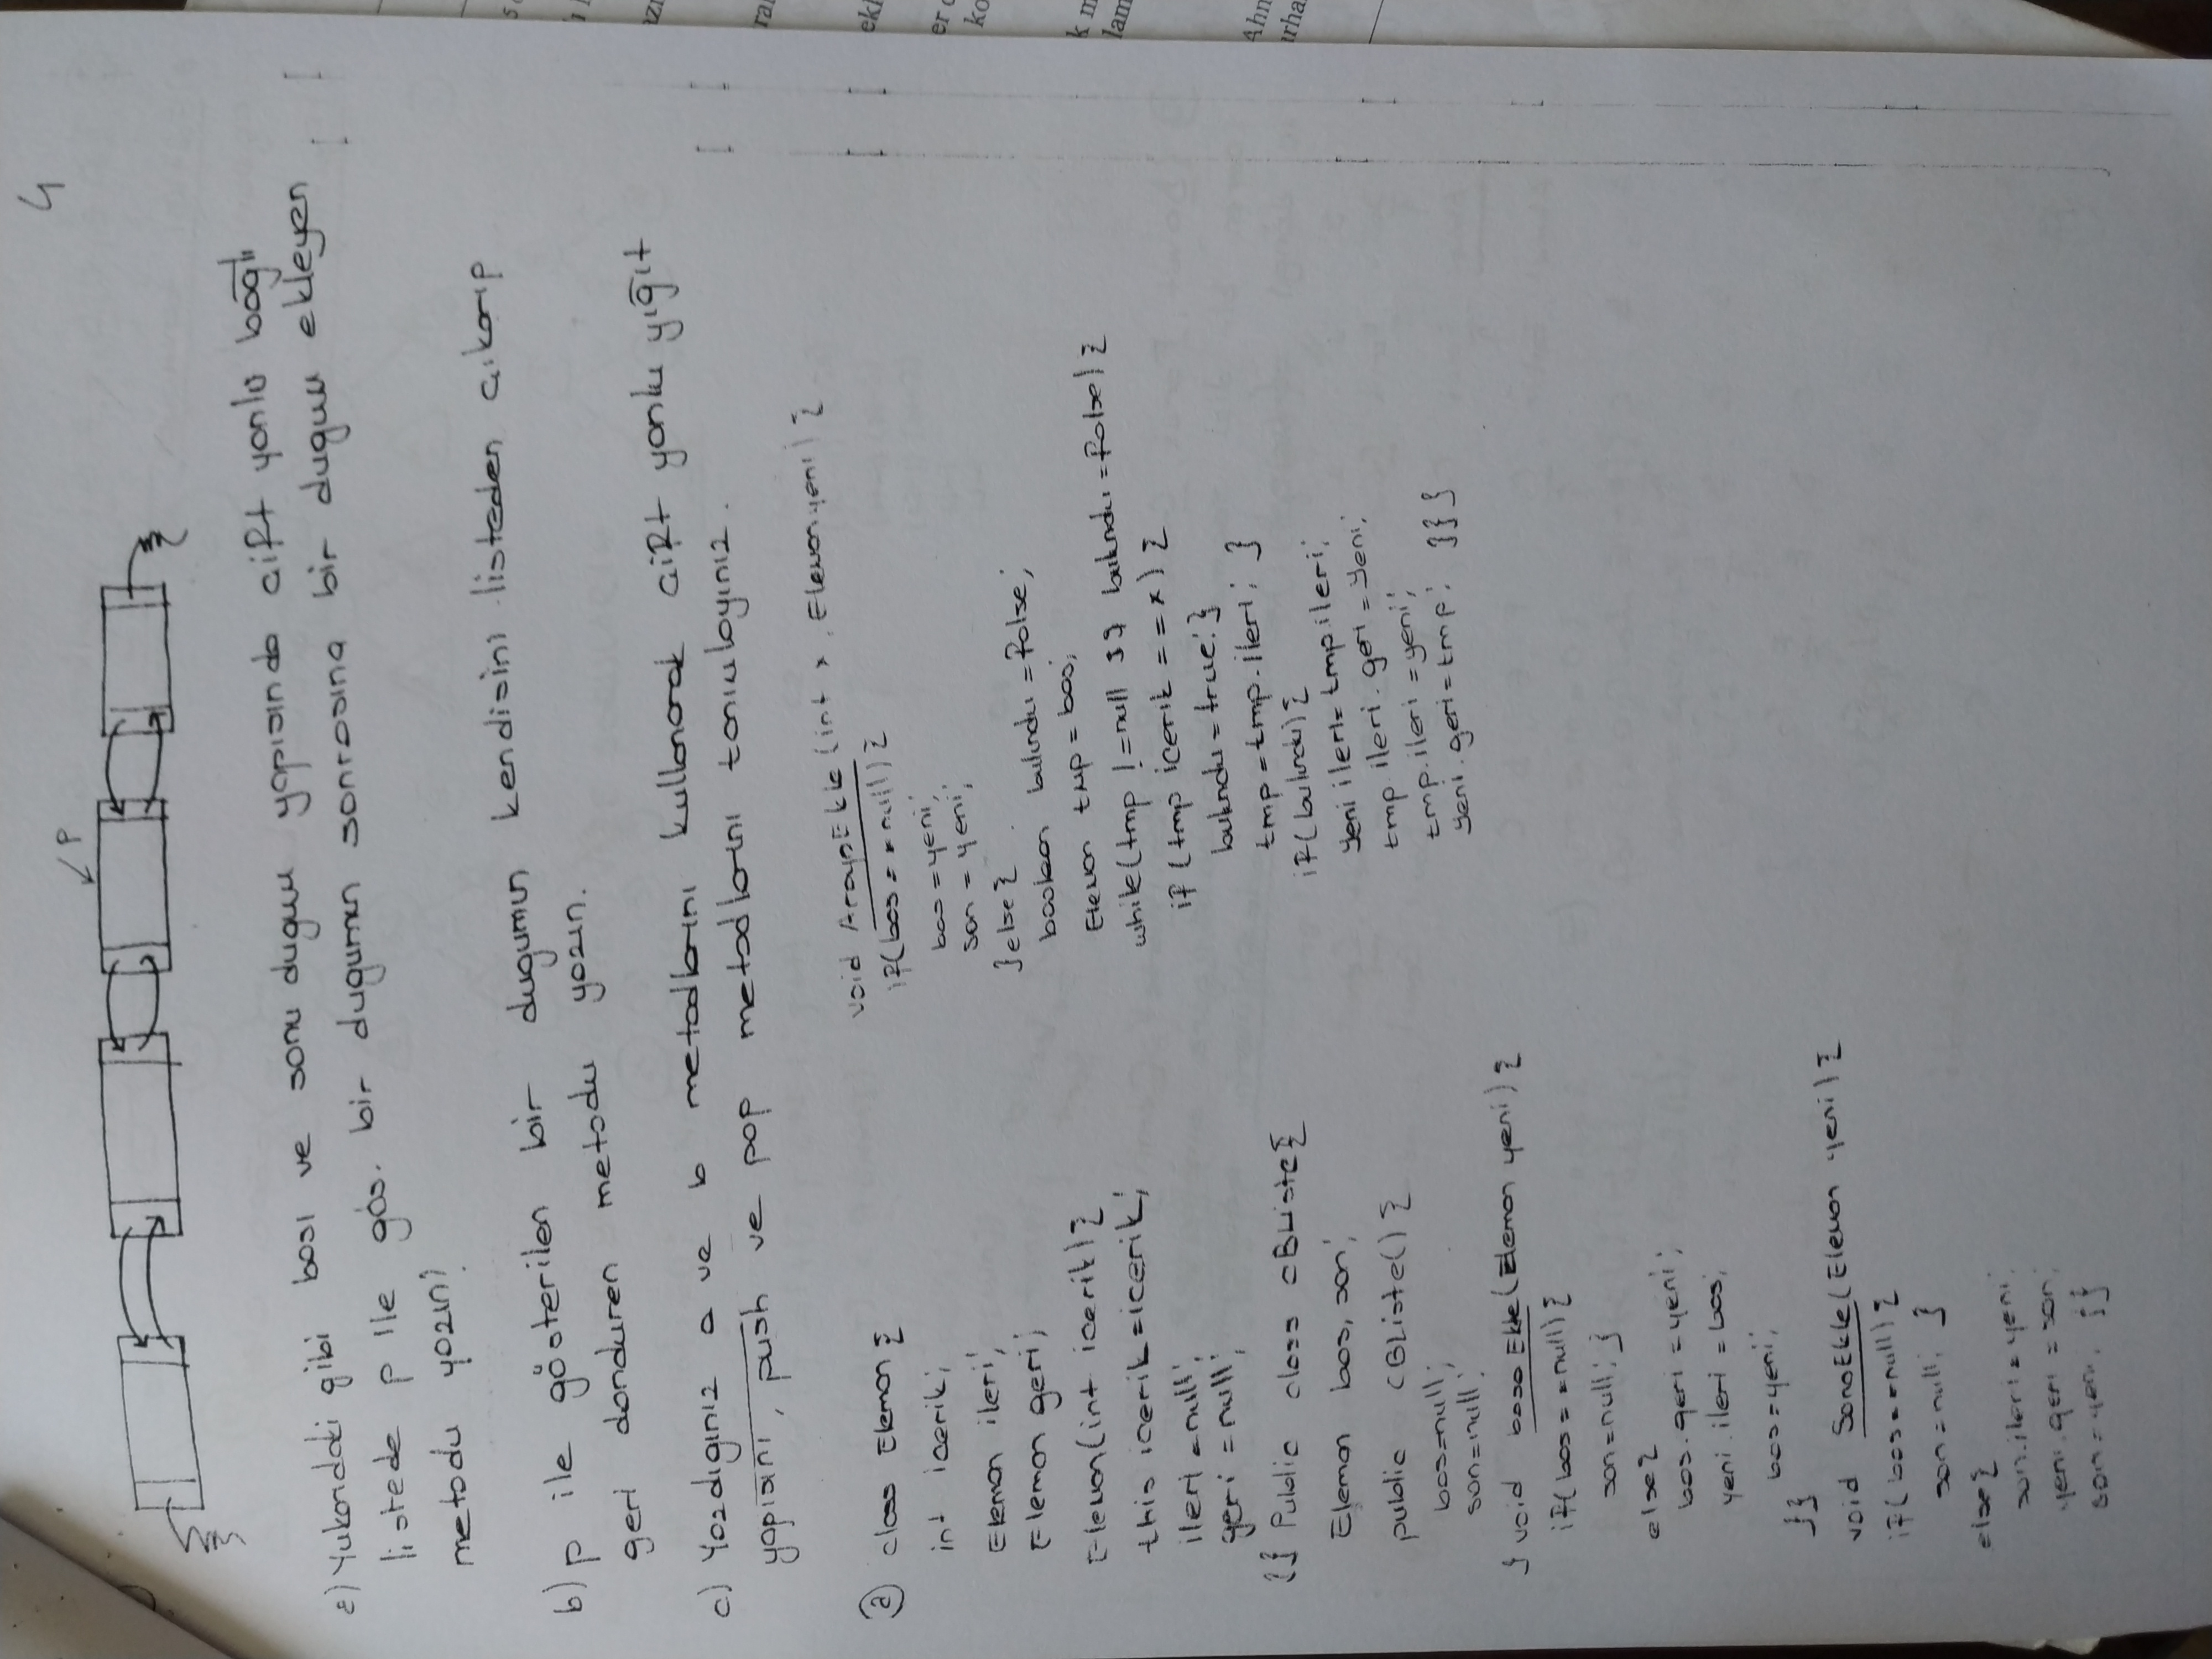 4
p
a) Yukarıdaki gibi bası ve sonu dugum yapısında cift yonlü bağlı
listede p ile gös. bir dugumun sonrasına bir dugum ekleyen
metodu yazın?
b) p ile gösterilen bir dugumun kendisini listeden cıkarıp
geri donduren metodu yazın.
c) Yazdıgınız a ve b metodlarını kullanarak cift yonlu yığıt
yapısını, push ve pop metodlarını tanımlayınız.
a) class Eleman {
int icerik;
Eleman ileri;
Eleman geri;
Eleman(int icerik) {
this icerik = icerik;
ileri = null;
geri = null;
}} Public class CBListe {
Eleman bas, son;
public CBListe() {
bas = null;
son = null;
} void basa Ekle (Eleman yeni) {
if( bas = = null) {
son = null; }
else {
bas. geri = yeni;
yeni. ileri = bas;
bas = yeni;
}}
void SonaEkle (Eleman yeni) {
if( bas = = null) {
son = null; }
else {
son. ileri = yeni;
yeni. geri = son;
son = yeni; }}
void ArayaEkle (int x, Eleman yeni) {
if(bas = = null) {
bas = yeni;
son = yeni;
} else {
boolean bulundu = false;
Eleman tmp = bas;
while (tmp != null && bulundu = false) {
if (tmp icerik = = x) {
bulundu = true; }
tmp = tmp. ileri; }
if (bulundu) {
yeni ileri = tmp ileri;
tmp ileri. geri = yeni;
tmp. ileri = yeni;
yeni. geri = tmp; }}}